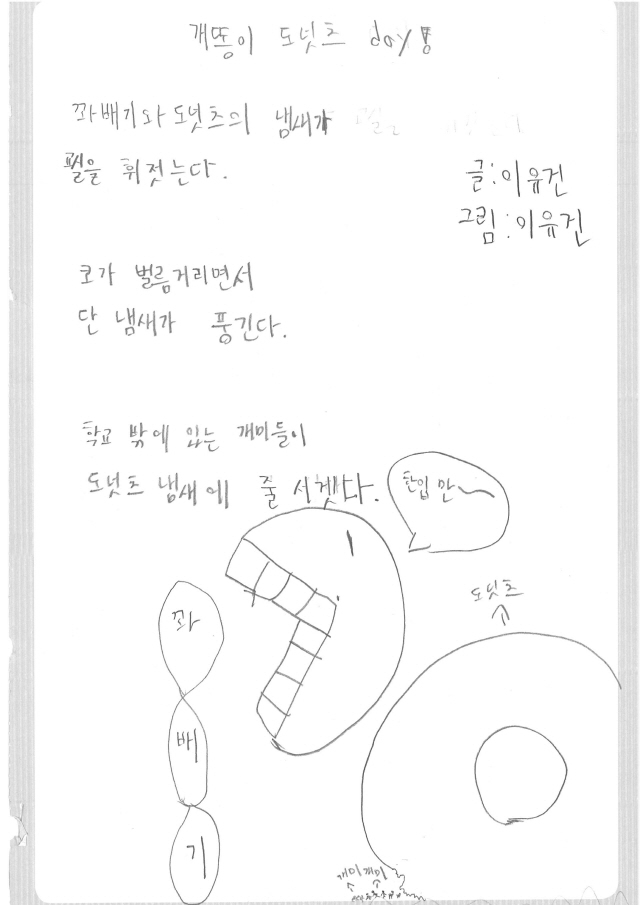 개똥이 도넛츠 day!
꽈배기와 도넛츠의 냄새가
펄을 휘젓는다.
글:이유건
그림:이유건
코가 벌름거리면서
단 냄새가 풍긴다.
학교 밖에 있는 개미들이
도넛츠 냄새에 줄 서겠다.
한입만~
도넛츠
꽈
배
기
개미